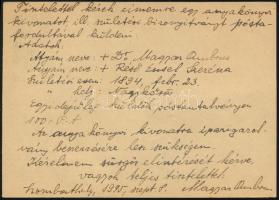 Tisztelettel kérek címemre egy anyakönyvi
kivonatot ill. születési bizonyítványt posta-
fordultával küldeni.
Adatok:
Atyám neve: + Dr. Magyar Ambrus
Anyám neve: +
Születés éve: 1894, febr. 23.
" hely: Nagykőrös
egyidejűleg küldök postautalványon
100-
Az anyakönyvi kivonatra iparigazol-
vány beszerzésére van szükségem.
Kérelmem sürgős elintézését kérve
vagyok teljes tisztelettel
Szombathely, 1945. szept. 8. Magyar Ambrus